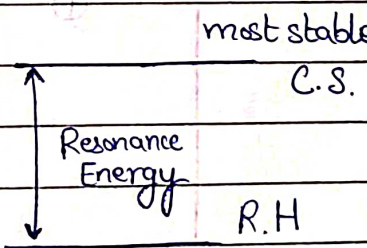 most stable
C.S.
Resonance
Energy
R.H